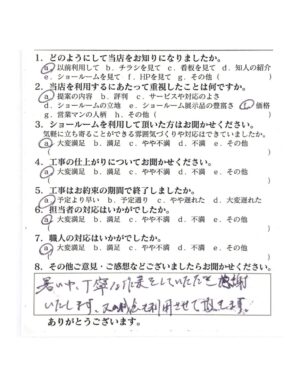 1. どのようにして当店をお知りになりましたか。
a. 以前利用して b. チラシを見て c. 看板を見て d. 知人の紹介
e. ショールームを見て f. HPを見て g. その他(　　　)
2. 当店を利用するにあたって重視したことは何ですか。
a. 提案の内容 b. 評判 c. サービスや対応のよさ
d. ショールームの立地 e. ショールーム展示品の豊富さ f. 価格
g. 営業マンの人柄 h. その他(　　　)
3. ショールームを利用して頂いた方はお聞かせください。
気軽に立ち寄ることができる雰囲気づくりや対応はできていましたか。
a. 大変満足 b. 満足 c. やや不満 d. 不満 e. その他
(　　　)
4. 工事の仕上がりについてお聞かせください。
a. 大変満足 b. 満足 c. やや不満 d. 不満 e. その他
(　　　)
5. 工事はお約束の期間で終了しましたか。
a. 予定より早い b. 予定通り c. やや遅れた d. 大変遅れた
6. 担当者の対応はいかがでしたか。
a. 大変満足 b. 満足 c. やや不満 d. 不満 e. その他
(　　　)
7. 職人の対応はいかがでしたか。
a. 大変満足 b. 満足 c. やや不満 d. 不満 e. その他
(　　　)
8. その他ご意見・ご感想などございましたらお聞かせください。
暑い中、丁寧な作業をしていただき感謝
いたします。又の機会も利用させて頂きます。
ありがとうございます。